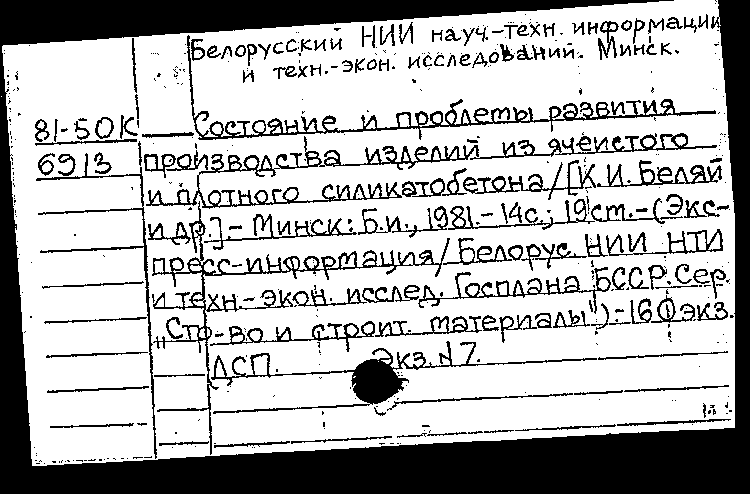 Белорусский НИИ науч.-техн. информации
и техн.-экон. исследований. Минск.
81-50К Состояние и проблеты развития
6913 производства изделий из ячеистого
и плотного силикатобетона/[К.И. Беляй
и др.].- Минск: Б.и., 1981.- 14с.; 19ст.-(Экс-
пресс-информация/Белорус. НИИ НТИ
и техн.-экон. исслед. Госплана БССР. Сер.
„Стр-во и строит. материалы").- 160экз.
ДСП. Экз. N 7.